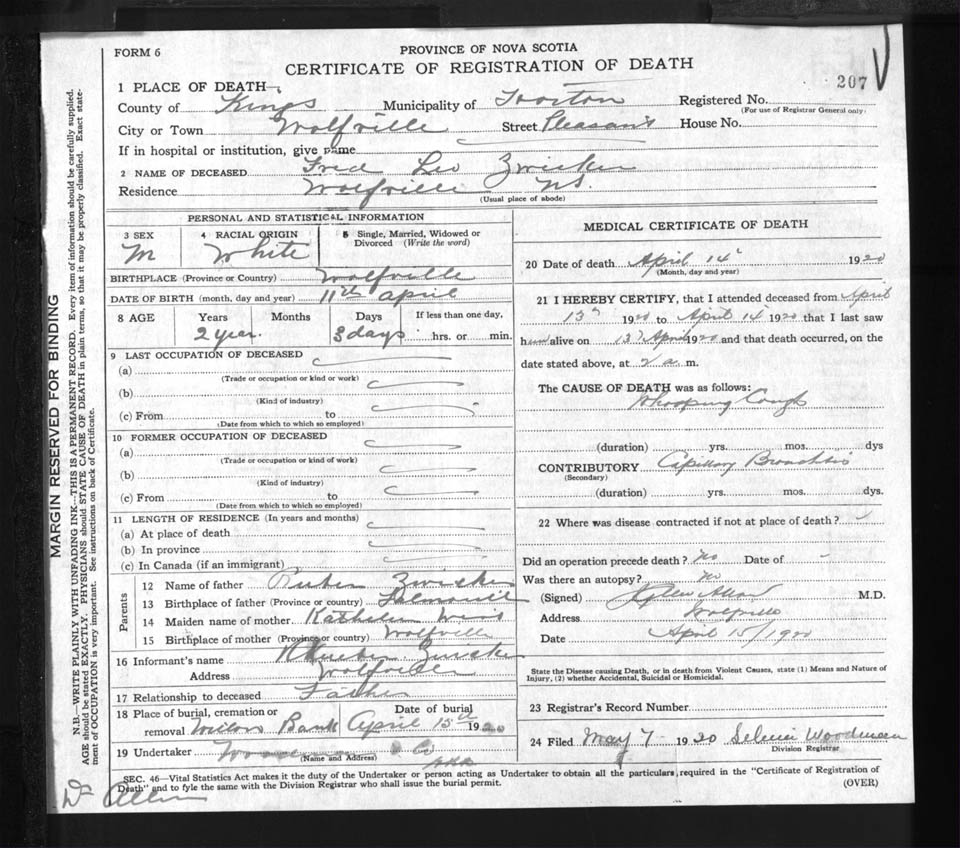 FORM 6
PROVINCE OF NOVA SCOTIA
CERTIFICATE OF REGISTRATION OF DEATH
207
1 PLACE OF DEATH
County of Kings Municipality of Horton Registered No.
(For use of Registrar General only)
City or Town Wolfville Street Pleasant House No.
If in hospital or institution, give name
2 NAME OF DECEASED Fred Leo Zwicker
Residence Wolfville N.S.
(Usual place of abode)
PERSONAL AND STATISTICAL INFORMATION
3 SEX 4 RACIAL ORIGIN 5 Single, Married, Widowed or Divorced (Write the word)
M White
BIRTHPLACE (Province or Country) Wolfville
DATE OF BIRTH (month, day and year) 11th April
8 AGE Years Months Days If less than one day,
2 year. 3 days hrs. or min.
9 LAST OCCUPATION OF DECEASED
(a)
(Trade or occupation or kind or work)
(b)
(Kind of industry)
(c) From to
(Date from which to which so employed)
10 FORMER OCCUPATION OF DECEASED
(a)
(Trade or occupation or kind of work)
(b)
(Kind of industry)
(c) From to
(Date from which to which so employed)
11 LENGTH OF RESIDENCE (In years and months)
(a) At place of death
(b) In province
(c) In Canada (if an immigrant)
Parents
12 Name of father Zwicker
13 Birthplace of father (Province or country)
14 Maiden name of mother
15 Birthplace of mother (Province or country) Wolfville
16 Informant's name Zwicker
Address Wolfville
17 Relationship to deceased Father
18 Place of burial, cremation or Date of burial
removal Willow Bank April 15th 1920
19 Undertaker
(Name and Address)
MEDICAL CERTIFICATE OF DEATH
20 Date of death April 14 1920
(Month, day and year)
21 I HEREBY CERTIFY, that I attended deceased from April
13 1920 to April 14 1920 that I last saw
him alive on 13 April 1920 and that death occurred, on
date stated above, at 2 a. m.
The CAUSE OF DEATH was as follows:
Whooping Cough
(duration) yrs. mos. dys
CONTRIBUTORY Capillary Bronchitis
(Secondary)
(duration) yrs. mos. dys.
22 Where was disease contracted if not at place of death?
Did an operation precede death? no Date of -
Was there an autopsy? no
(Signed) M.D.
Address Wolfville
Date April 15/1920
State the Disease causing Death, or in death from Violent Causes, state (1) Means and Nature of
Injury, (2) whether Accidental, Suicidal or Homicidal.
23 Registrar's Record Number
24 Filed May 7 1920 Woodman
Division Registrar
SEC. 46—Vital Statistics Act makes it the duty of the Undertaker or person acting as Undertaker to obtain all the particulars required in the "Certificate of Registration of
Death" and to fyle the same with the Division Registrar who shall issue the burial permit.
(OVER)
MARGIN RESERVED FOR BINDING
N.B.—WRITE PLAINLY WITH UNFADING INK—THIS IS A PERMANENT RECORD. Every item of information should be carefully supplied.
AGE should be stated EXACTLY. PHYSICIANS should STATE CAUSE OF DEATH in plain terms, so that it may be properly classified. Exact state-
ment of OCCUPATION is very important. See instructions on back of Certificate.